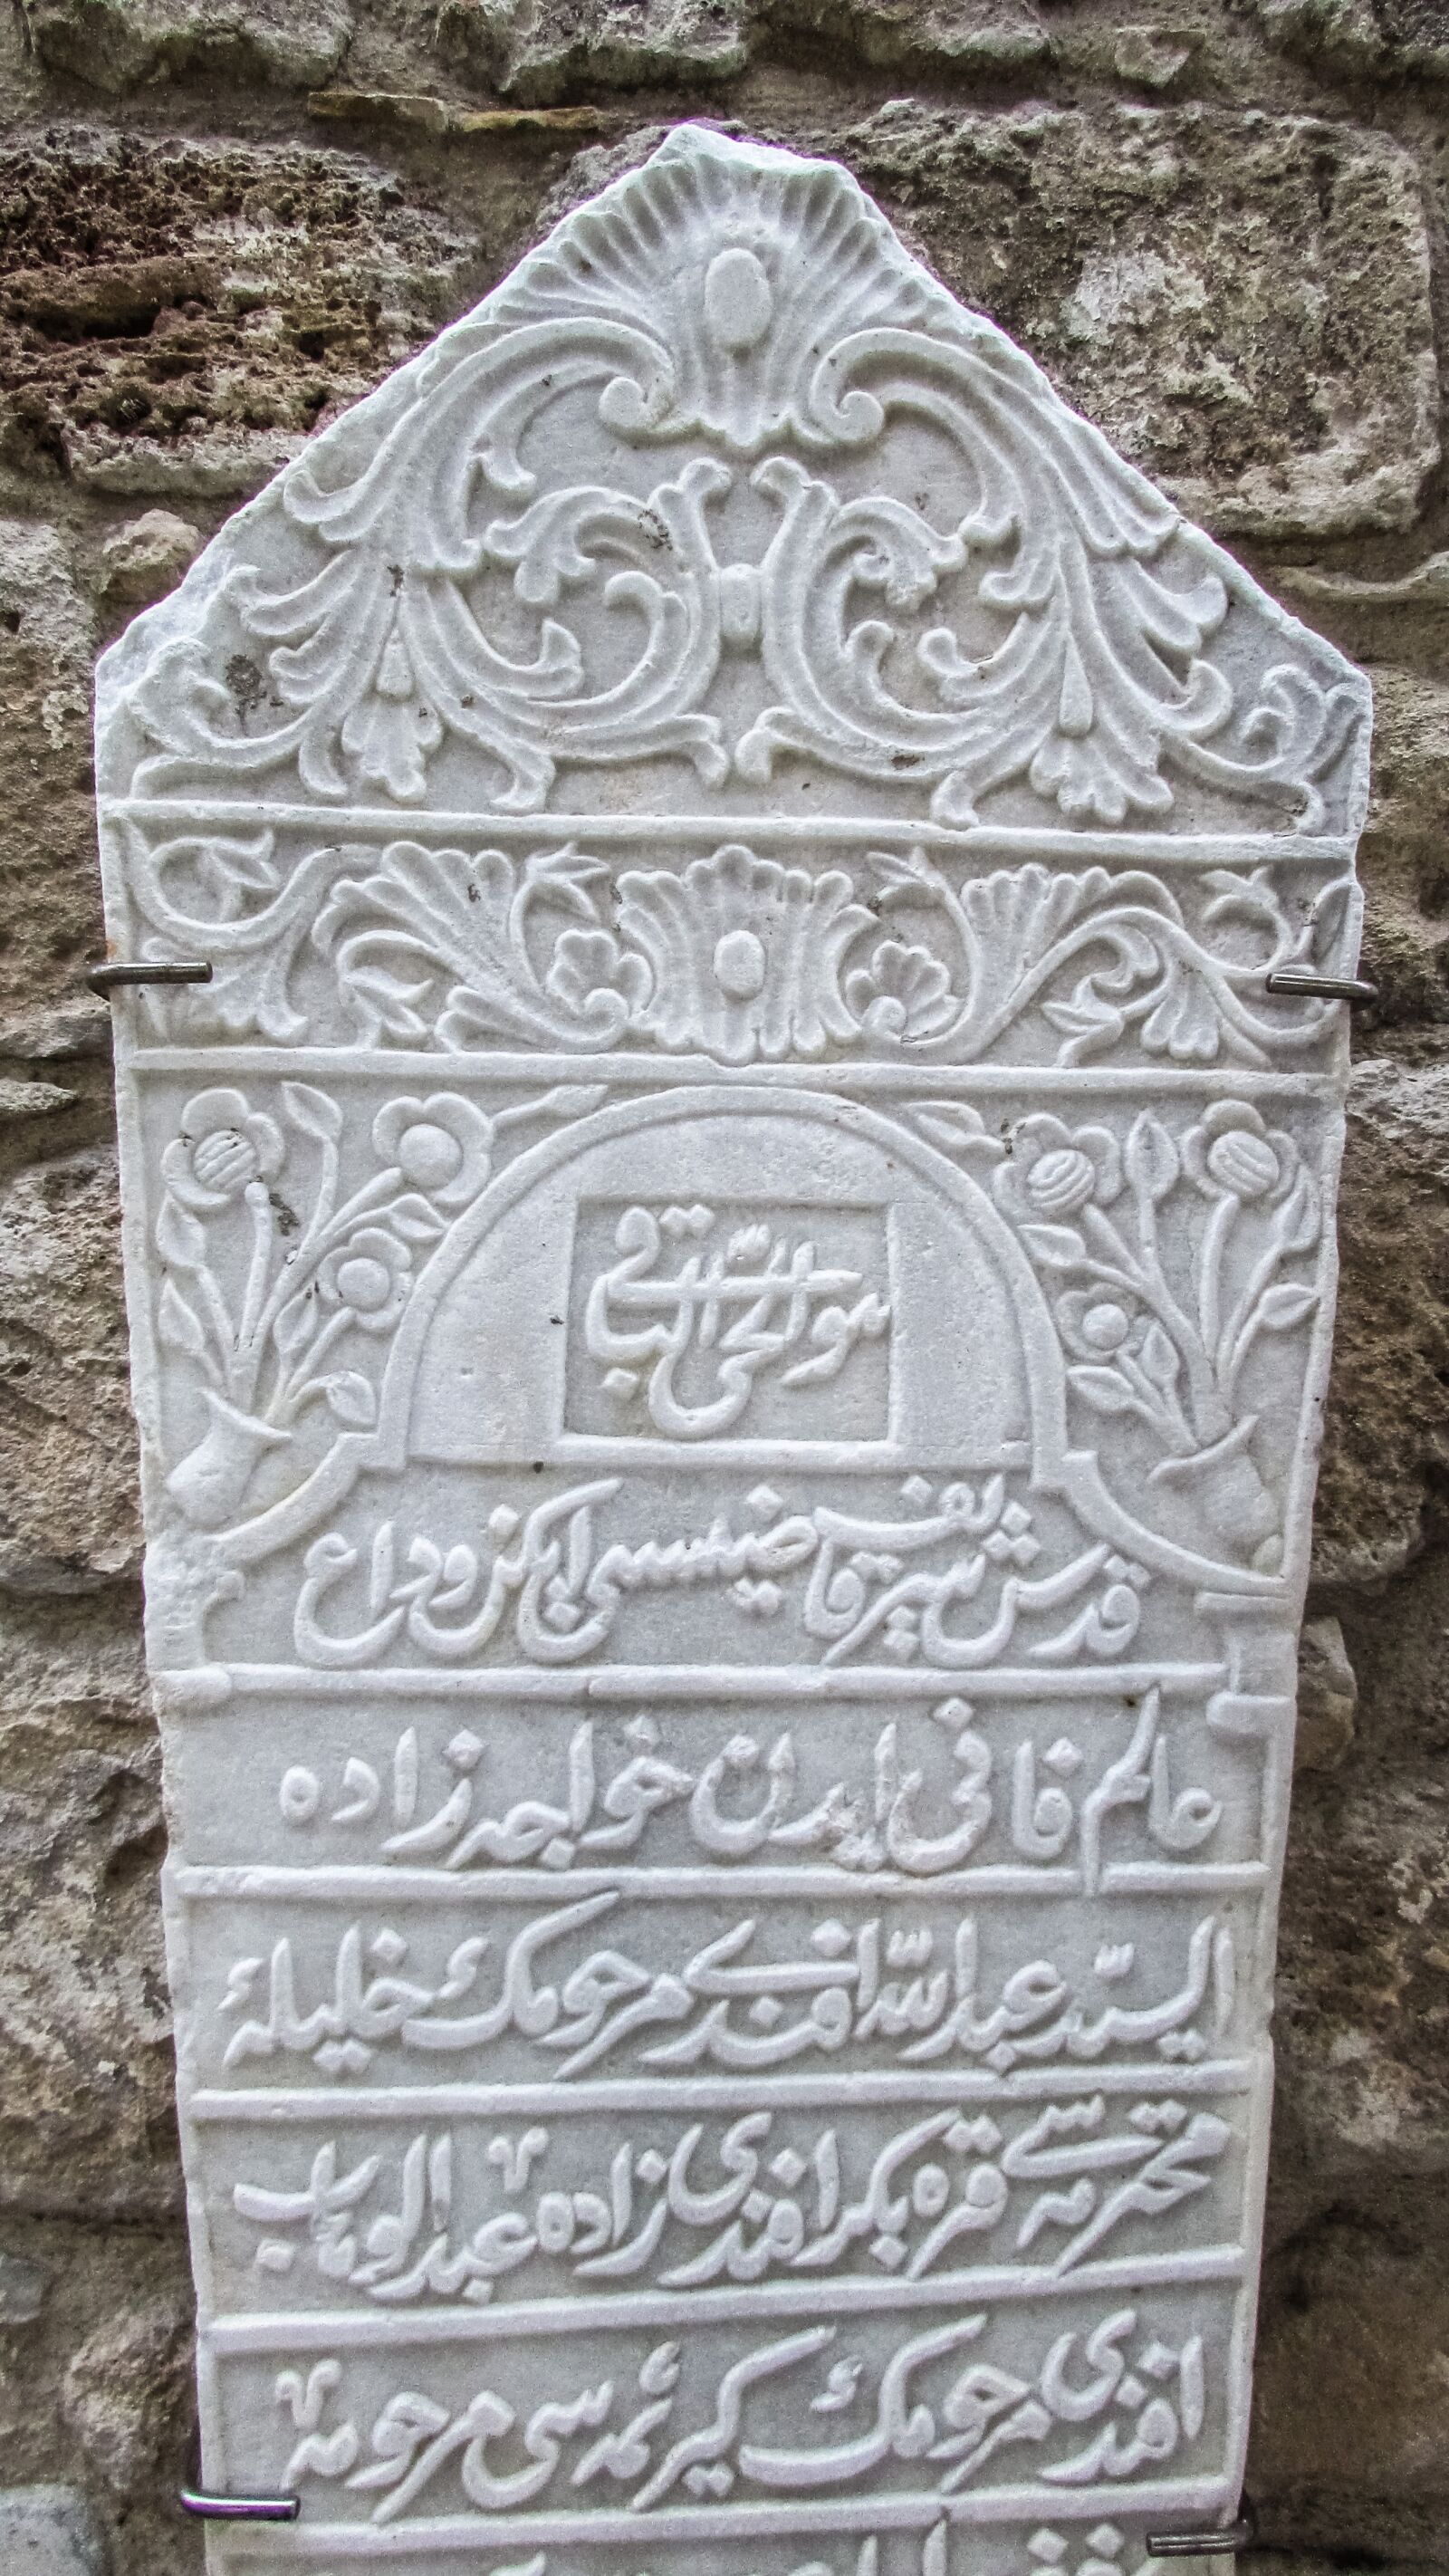 هو الحی الباقی
قدس شریف قاضیسی ایکن وداع
عالم فانی ایدن خواجه زاده
السید عبد الله افندی مرحومك خلیلۀ
محترمه سی قره بکر افندی زاده عبد الوهاب
افندی مرحومك کریمه سی مرحومه